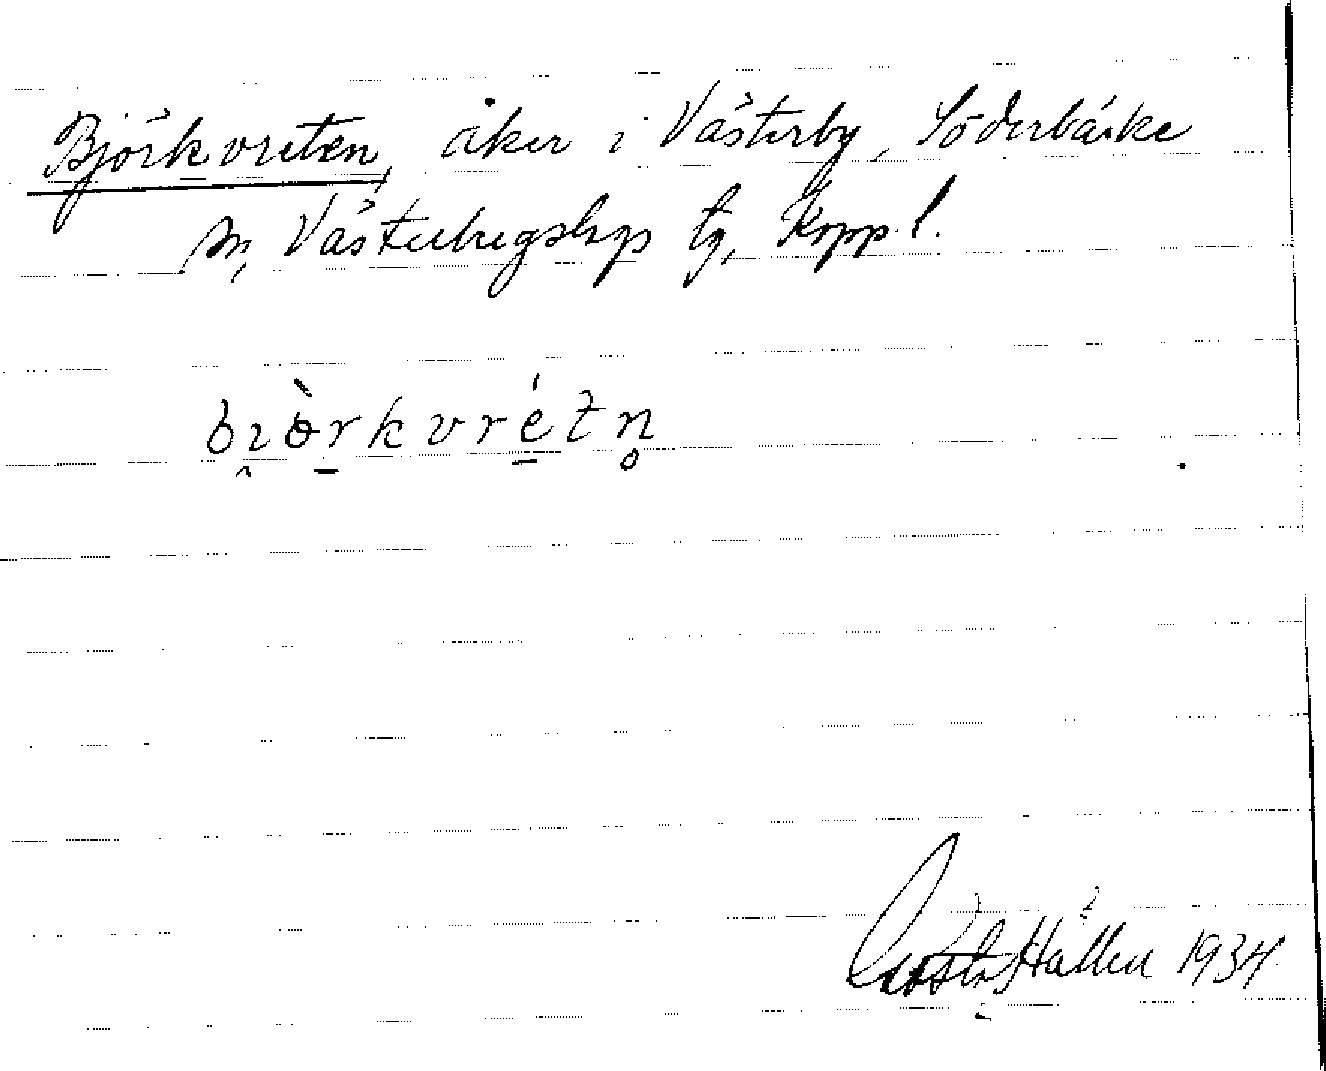 Björkvreten, åker i Västerby, Söderbärke
sn, Västerbergslags tg, Kopp. l.
bı̯ɵ̀r̠kvré̠tn̥
Gösta Hallen 1934